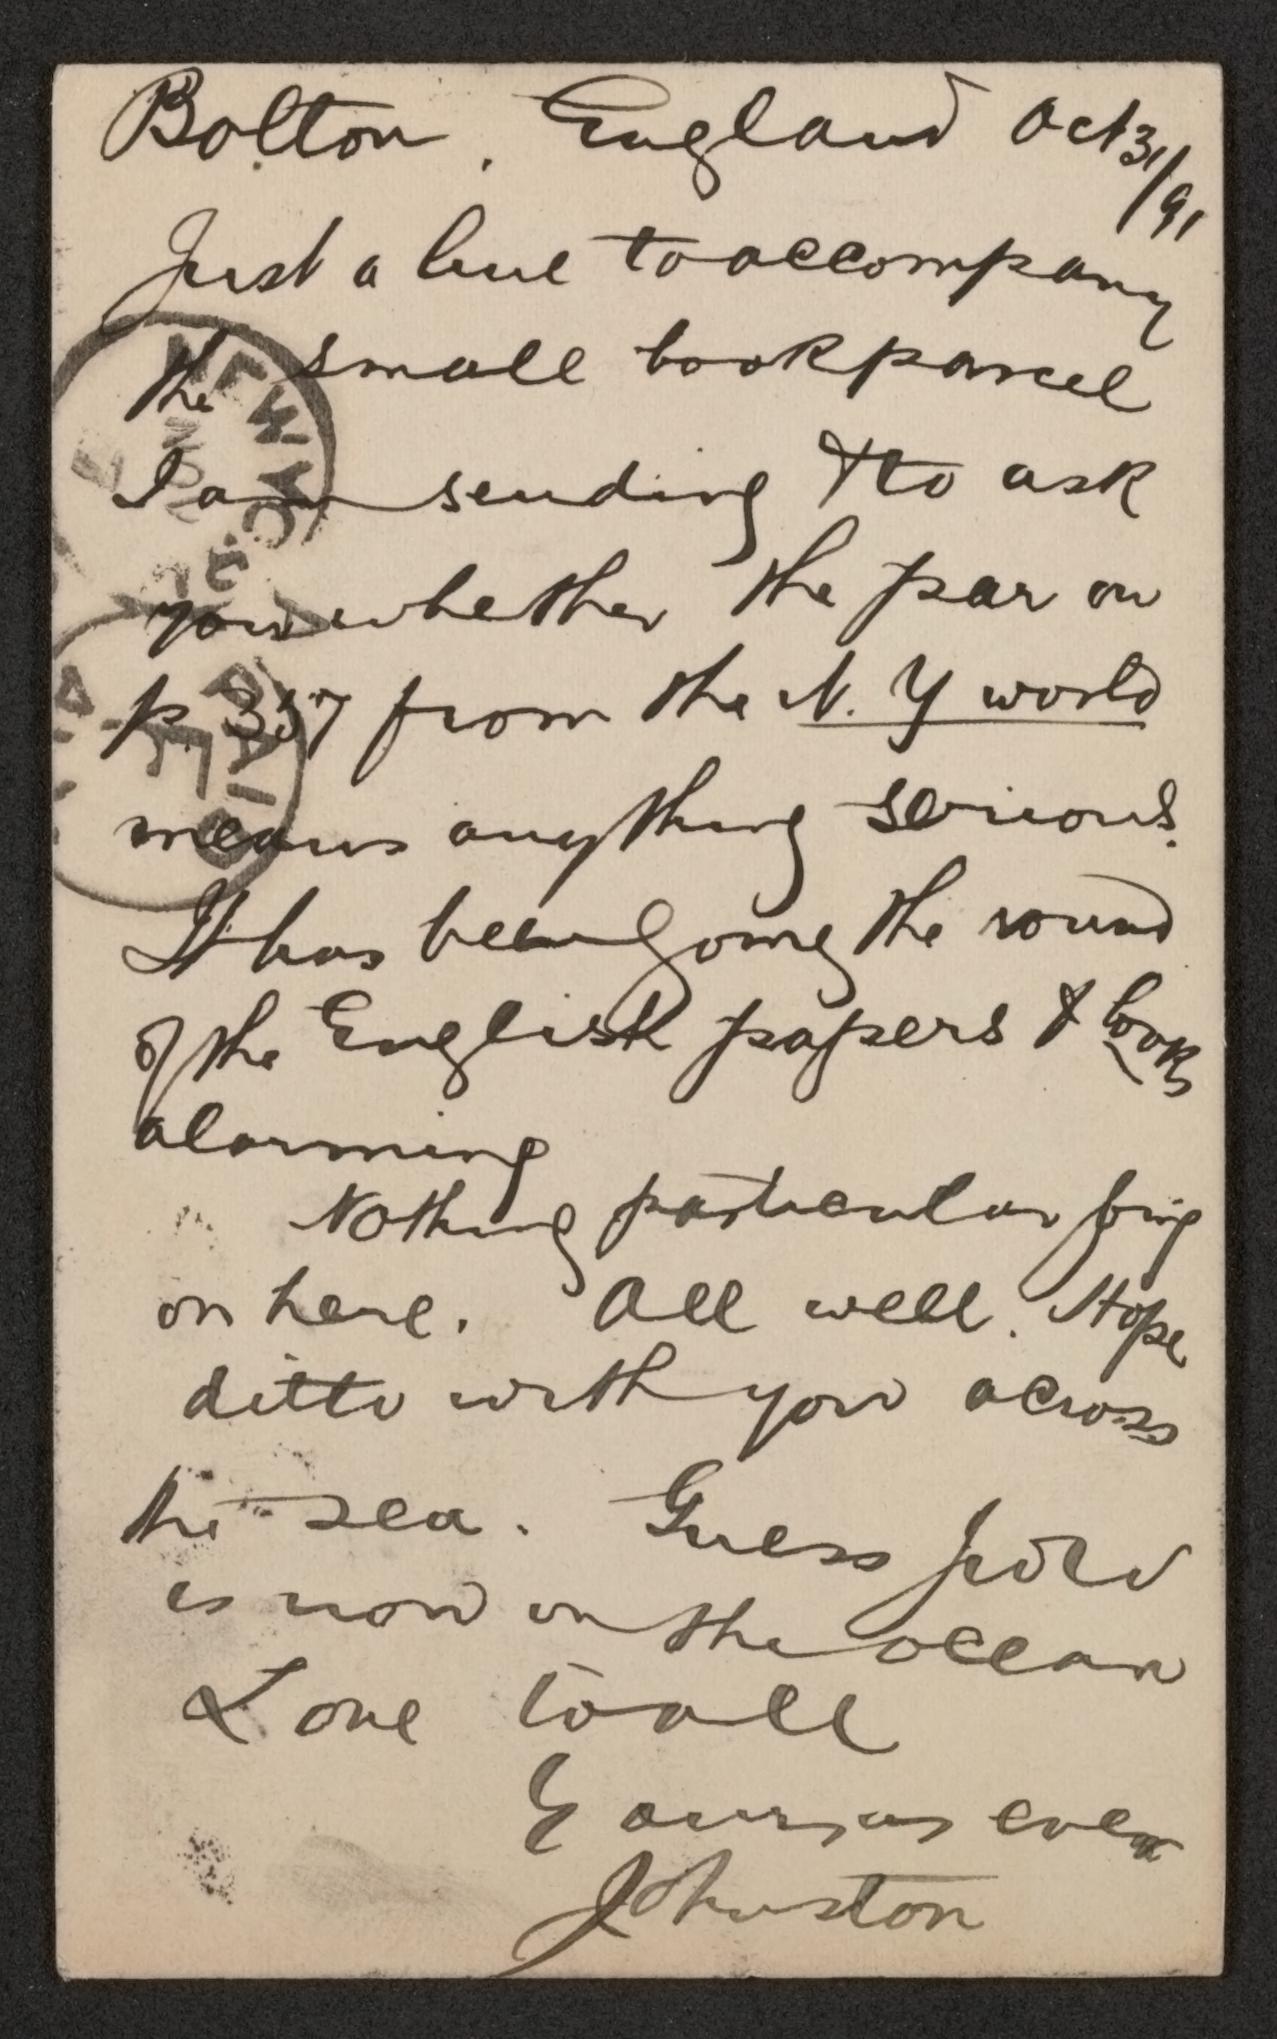 Bolton, England Oct 31/91
Just a line to accompany
the small book parcel
I am sending & to ask
you whether the par on
p. 357 from the N. Y world
means anything serious.
It has been going the round
of the English papers & looks
alarming
Nothing particular going
on here. All well. Hope
ditto with you across
the sea. Guess
is now on the ocean
Love to all
Yours as ever
Johnston
NEW YORK
PAID